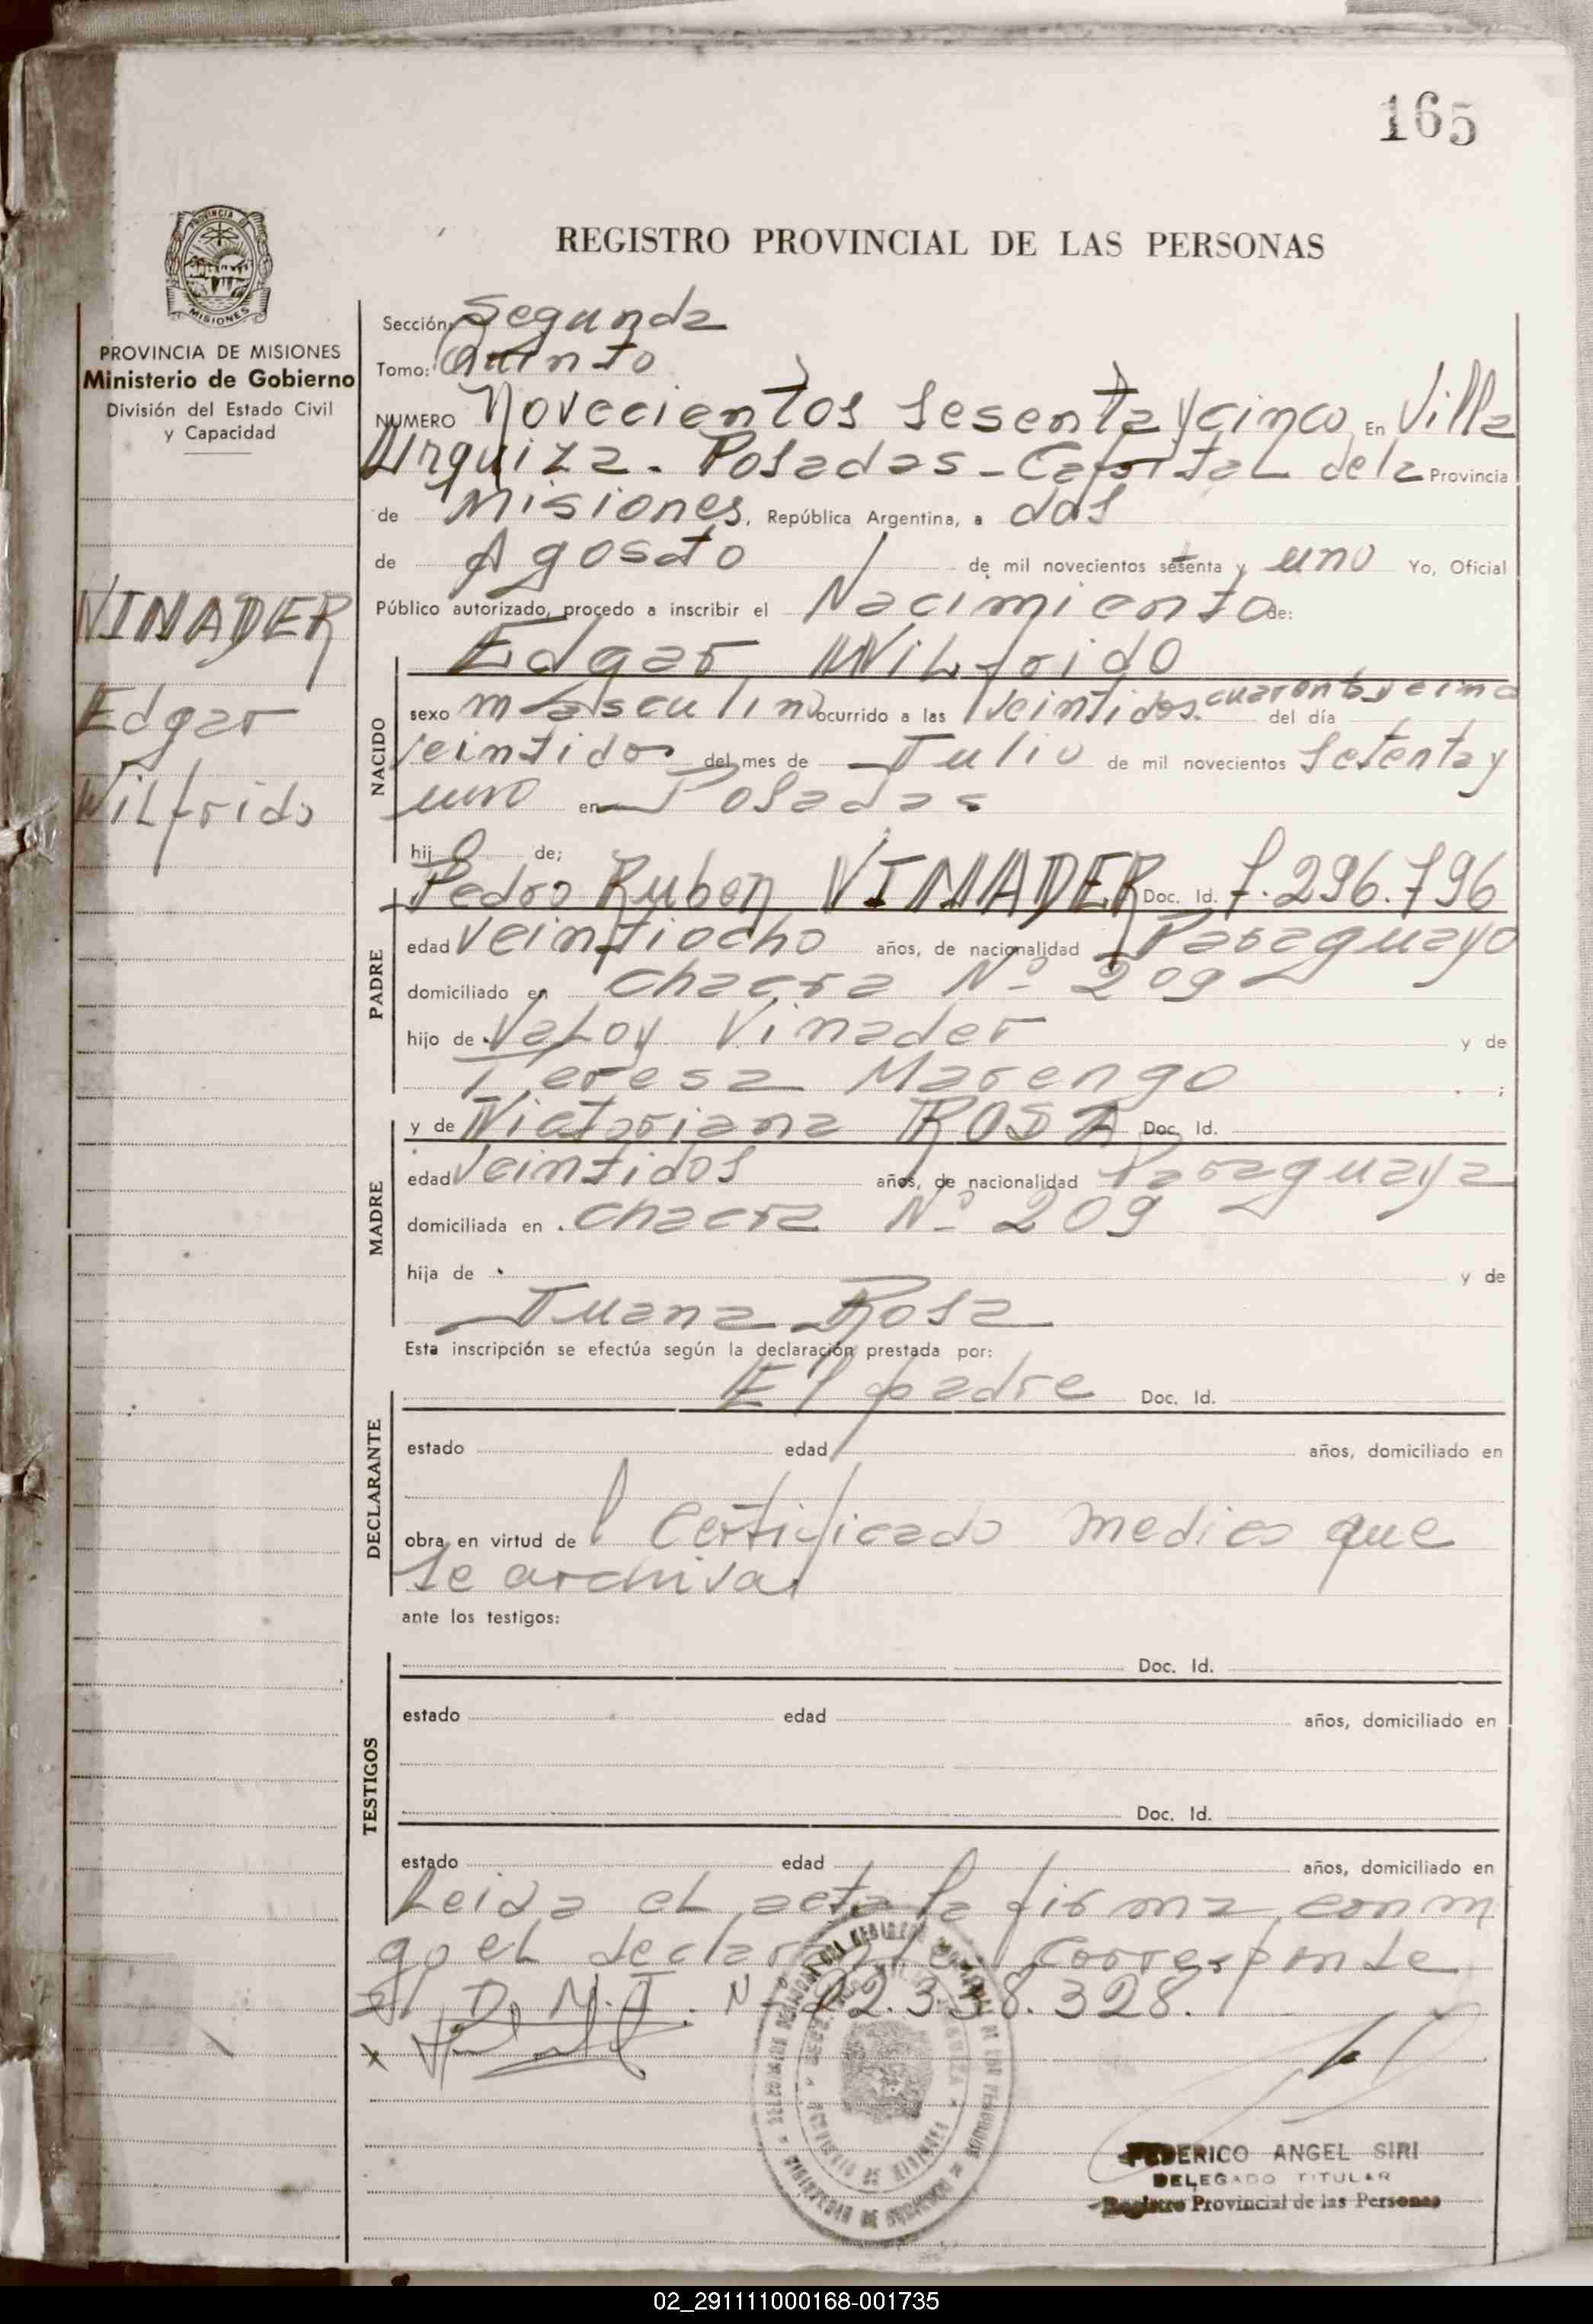 165
PROVINCIA DE MISIONES
MISIONES
PROVINCIA DE MISIONES
Ministerio de Gobierno
División del Estado Civil
y Capacidad
VINADER
Edgar
Wilfrido
REGISTRO PROVINCIAL DE LAS PERSONAS
Sección: Segunda
Tomo: Quinto
NUMERO Novecientos Sesenta y cinco En Villa
Urquiza. Posadas - Capital de la Provincia
de Misiones, República Argentina, a dos
de Agosto de mil novecientos setenta y uno Yo, Oficial
Público autorizado, procedo a inscribir el Nacimiento de:
Edgar Wilfrido
NACIDO
sexo masculino ocurrido a las Veintidos cuarenta y cinco del día
Veintidos del mes de Julio de mil novecientos Setenta y
uno en Posadas
hijo de;
PADRE
Pedro Ruben VINADER Doc. Id. 7.296.796
edad Veintiocho años, de nacionalidad Paraguayo
domiciliado en chacra Nº 209
hijo de Valoy Vinader y de
Teresa Marengo ;
MADRE
y de Victoriana ROSA Doc. Id.
edad Veintidos años, de nacionalidad Paraguaya
domiciliada en chacra Nº 209
hija de y de
Juana Rosa
Esta inscripción se efectúa según la declaración prestada por:
DECLARANTE
El padre Doc. Id.
estado edad años, domiciliado en
obra en virtud del Certificado medico que
se archiva
ante los testigos:
TESTIGOS
Doc. Id.
estado edad años, domiciliado en
Doc. Id.
estado edad años, domiciliado en
Leida el acta la firma conm
go el declarante Corresponde
el D.N.I. Nº 22.338.328.
FEDERICO ANGEL SIRI
DELEGADO TITULAR
Registro Provincial de las Personas
02_291111000168-001735